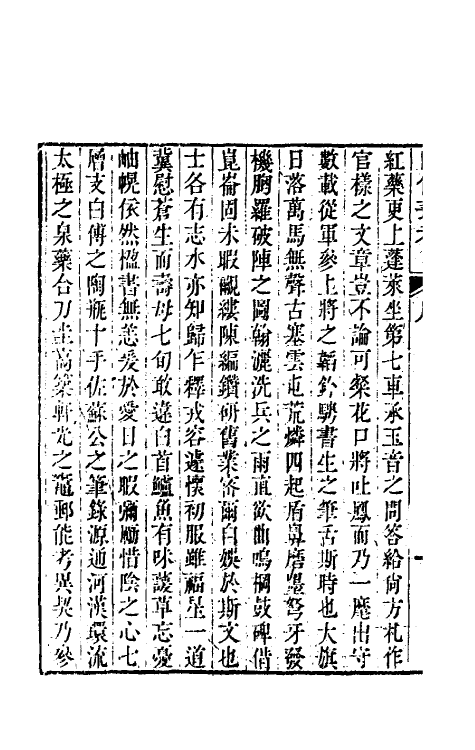 紅藥更上蓬萊坐第七車承玉音之問答給尙方札作
官樣之文章豈不論可粲花口將吐鳳而乃一麾出守
數載從軍參上將之韜鈐騁書生之筆舌斯時也大旗
日落萬馬無聲古塞雲屯荒燐四起盾鼻磨墨弩牙發
機胸羅破陣之圖翰灑洗兵之雨直欲曲鳴㭎鼓碑借
崑崙固未暇覼縷陳編鑽硏舊業容爾自娛於斯文也
士各有志水亦知歸乍釋戎容遽懷初服雖福星一道
冀慰蒼生而壽母七旬敢違白首鱸魚有味諼草忘憂
岫幌依然楹書無恙爰於愛日之暇彌勵惜陰之心七
層支白傅之陶瓶十手佐蘇公之筆錄源通河漢環流
太極之泉藥合刀圭高築軒光之竈郵能考異契乃參